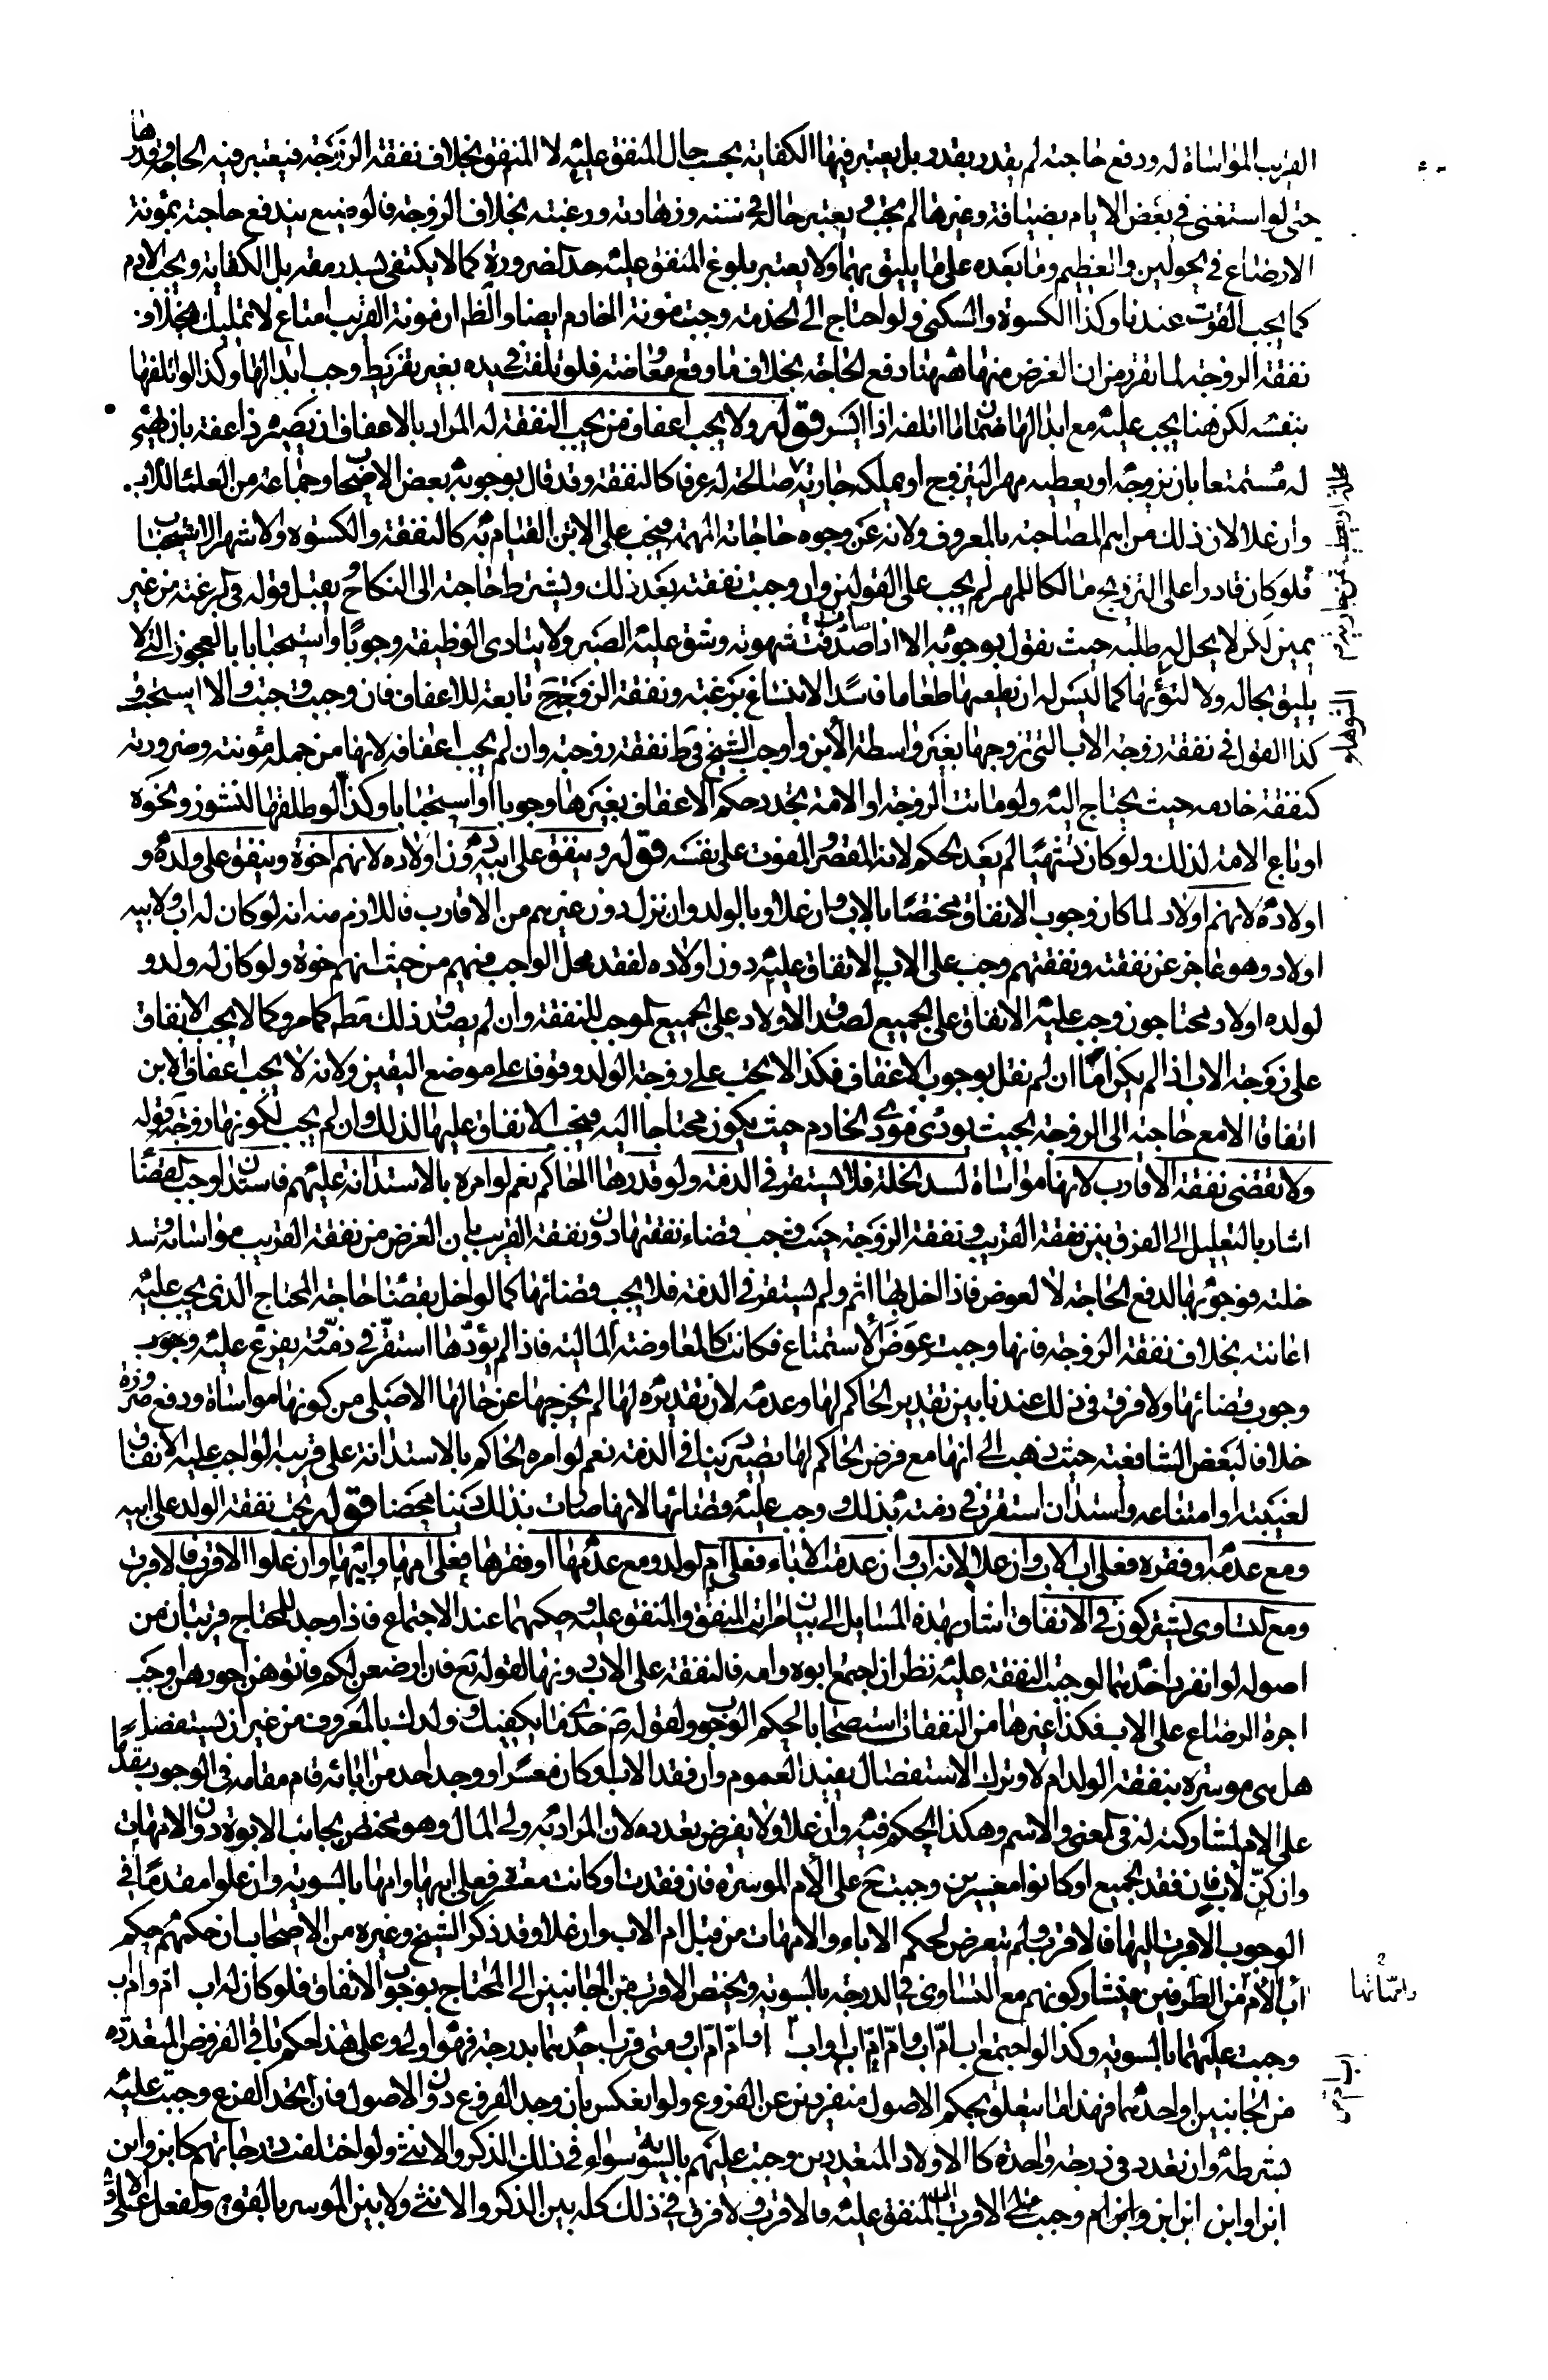 القريب المواساة له ودفع حاجته لم يقدر بقدر بل يعتبر فيها الكفاية بحسب حال المنفق عليه لا المنفق بخلاف نفقة الزوجة فيعتبر فيه الحاجة وقدرها
حتى لو استغنى في بعض الايام بضيافة وغيرها لم يجب ويعتبر حاله في سنه وزهادته ورغبته بخلاف الزوجة فالرضيع يندفع حاجته بمؤنة
الارضاع في الحولين والفطيم وما بعده على ما يليق بهما ولا يعتبر بلوغ المنفق عليه حد الضرورة كما لا يكتفى بسد رمقه بل الكفاية ويجب الادم
كما يجب القوت عندنا وكذا الكسوة والسكنى ولو احتاج الى الخدمة وجبت مؤنة الخادم ايضا والظم ان مؤنة القريب امتاع لا تمليك بخلاف
نفقة الزوجة لما تقرر من ان الغرض منها ههنا دفع الحاجة بخلاف ما وقع معاوضة فلو تلفت في يده بغير تفريط وجب ابدالها وكذا لو اتلفها
بنفسه لكن هنا يجب عليه مع ابدالها ضمان ما اتلفه اذا ايسر قوله ولا يجب اعفاف من يجب النفقة له المراد بالاعفاف ان يصيره ذا عفة بان يهيئ
له مستمتعا بان يزوجه او يعطيه مهرا ليتزوج او يملكه جارية صالحة له عرفا كالنفقة وقد قال بوجوبه بعض الاصحاب وجماعة من العلماء للاب
وان علا لان ذلك من اهم المصاحبة بالمعروف ولانه من وجوه حاجاته المهمة فيجب على الابن القيام به كالنفقة والكسوة والاشهر الاستحباب
فلو كان قادرا على التزويج مالكا للمهر لم يجب على القولين وان وجبت نفقته بعد ذلك ويشترط حاجته الى النكاح ويقبل قوله في الرغبة من غير
يمين لكن لا يحل له طلبه حيث نقول بوجوبه الا اذا صدقت شهوته وشق عليه الصبر ولا يتادى الوظيفة وجوبا واستحبابا بالعجوز التي لا
يليق بحاله ولا الشوهاء كما ليس له ان يطعمها طعاما فاسدا لا ينساغ بزعته ونفقة الزوجة ح تابعة للاعفاف فان وجب وجبت والا استحبت و
كذا القول في نفقة زوجة الاب التي تزوجها بغير واسطة الابن واوجب الشيخ في ط نفقة زوجته وان لم يجب اعفافه لانها من جملة مؤنته وضرورته
كنفقة خادمه حيث يحتاج اليه ولو ماتت الزوجة او الامة تجدد حكم الاعفاف بغيرها وجوبا او استحبابا وكذا لو طلقها لنشوز ونحوه
او باع الامة لذلك ولو كان تشهيا لم يعد الحكم لانه المقصر والمفوت على نفسه قوله وينفق على ابيه دون اولاده لانهم اخوة وينفق على ولده و
اولاده لانهم اولاد لما كان وجوب الانفاق مختصا بالاب وان علا وبالولد وان نزل دون غيرهم من الاقارب فاللازم منه انه لو كان له اب ولابيه
اولاد وهو عاجز عن نفقته ونفقتهم وجب على الابن الانفاق عليه دون اولاده لفقد محل الواجب فيهم من حيث انهم اخوة ولو كان له ولد و
لولده اولاد محتاجون وجب عليه الانفاق على الجميع لصدق الاولاد على الجميع الموجب للنفقة وان لم يصدق ذلك مطم كما مر وكما لا يجب الانفاق
على زوجة الاب اذا لم يكن اما ان لم نقل بوجوب الاعفاف فكذا لا تجب على زوجة الولد وقوفا على موضع اليقين ولانه لا يجب اعفاف الابن
اتفاقا الا مع حاجته الى الزوجة بحيث يؤدي مؤدى الخادم حيث يكون محتاجا اليه فيجب الانفاق عليها لذلك وان لم يجب لكونها زوجة قوله
ولا تقضى نفقة الاقارب لانها مواساة لسد الخلة فلا يستقر في الذمة ولو قدرها الحاكم نعم لو امره بالاستدانة عليهم فاستدان وجب القضاء
اشار بالتعليل الى الفرق بين نفقة القريب ونفقة الزوجة حيث وجب قضاء نفقتها دون نفقة القريب بان الغرض من نفقة القريب مواساته وسد
خلته فوجوبها لدفع الحاجة لا لعوض فاذا اخل بها اثم ولم يستقر في الذمة فلا يجب قضائها كما لو اخل بقضاء حاجة المحتاج الذي يجب عليه
اعانته بخلاف نفقة الزوجة فانها وجبت عوض الاستمتاع فكانت كالمعاوضة المالية فاذا لم يؤدها استقر في ذمته ويفرع عليه وجوب
وجوب قضائها ولا فرق في ذلك عندنا بين تقدير الحاكم لها وعدمه لان تقديره لها لم يخرجها عن حالها الاصلي من كونها مواساة ودفع ضرورة
خلافا لبعض الشافعية حيث ذهب الى انها مع فرض الحاكم لها تصير دينا في الذمة نعم لو امره الحاكم بالاستدانة على قريبه الواجب عليه الانفاق
لغيبته او امتناعه واستدان استقر في ذمته بذلك وجب عليه قضائها لانها صارت بذلك دينا محضا قوله يجب نفقة الولد على ابيه
ومع عدمه او فقره فعلى اب الاب وان علا لانه اب وان عدمت الاباء فعلى ام الولد ومع عدمها او فقرها فعلى امها وابيها وان علوا الاقرب فالاقرب
ومع التساوي يشتركون في الانفاق اشار بهذه المسايل الى بيان مراتب المنفق والمنفق عليه وحكمهما عند الاجتماع فاذا وجد للمحتاج قريبان من
اصوله لو انفرد احدهما لوجبت النفقة عليه نظر ان اجتمع ابوه وامه فالنفقة على الاب دونها لقوله تع فان ارضعن لكم فاتوهن اجورهن اوجب
اجرة الرضاع على الاب فكذا غيرها من النفقات استصحابا لحكم الوجوب ولقوله ص خذي ما يكفيك وولدك بالمعروف من غير ان يستفصل
هل هي موسرة بنفقة الولد ام لا وترك الاستفصال يفيد العموم وان فقد الاب او كان معسرا ووجد احد من ابائه قام مقامه في الوجوب مقدما
على الام لمشاركته له في المعنى والاسم وهكذا الحكم فيه وان علا ولا يفرض تعدده لان المراد به ولي المال وهو مختص بجانب الابوة دون الامهات
وان كن لاب فان فقد الجميع او كانوا معسرين وجبت ح على الام الموسرة فان فقدت او كانت معسرة فعلى ابيها وامها بالسوية وان علوا مقدما في
الوجوب الاقرب اليها فالاقرب ولم يتعرض لحكم الاباء والامهات من قبل ام الاب وان علا وقد ذكر الشيخ وغيره من الاصحاب ان حكمهم حكم
اب الام من الطرفين فيتشاركونهم مع التساوي في الدرجة بالسوية ويختص الاقرب من الجانبين الى المحتاج بوجوب الانفاق فلو كان له اب ام وام اب
وجبت عليهما بالسوية وكذا لو اجتمع اب ام اب وام ام اب واب ام ام اب ومتى قرب احدهما بدرجة فهو اولى وعلى هذا حكم باقي الفروض المتعددة
من الجانبين او احدهما فهذا ما يتعلق بحكم الاصول منفردين عن الفروع ولو انعكس بان وجد الفروع دون الاصول فان اتحد الفرع وجبت عليه
بشرطه وان تعدد في درجة واحدة كالاولاد المتعددين وجبت عليهم بالسوية سواء في ذلك الذكر والانثى ولو اختلفت درجاتهم كابن وابن
ابن او ابن ابن ابن وابن ام وجبت على الاقرب الى المنفق عليه فالاقرب ولا فرق في ذلك كله بين الذكر والانثى ولا بين الموسر بالقوة وبالفعل
وامهاتها